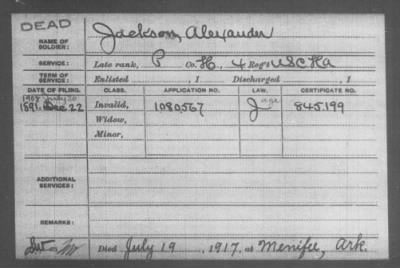 DEAD
NAME OF SOLDIER: Jackson, Alexander
SERVICE: Late rank, P Co. H, 4 Reg't USCHa
TERM OF SERVICE: Enlisted , 1 Discharged , 1
DATE OF FILING. CLASS. APPLICATION NO. LAW. CERTIFICATE NO.
1908 July 20
1891. Dec 22 Invalid, 1080,567 age 845,199
Widow,
Minor,
ADDITIONAL SERVICES:
REMARKS:
Died July 19, 1917, at Menifee, Ark.